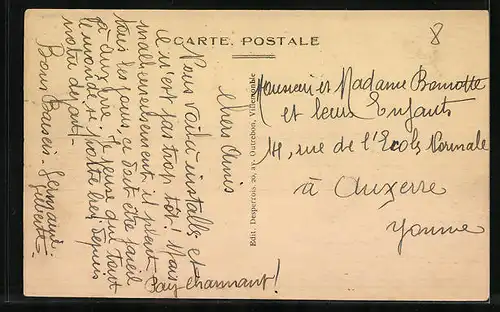 CARTE POSTALE
8
Chers Amis
Nous voilà installés et
ce n'est pas trop tôt ! Mais
malheureusement, il pleut
tous les jours, ce doit être pareil
à Auxerre. Je pense que tout
le monde se porte bien depuis
notre départ.
Bons Baisers, Germaine
Gilbert
Pays charmant !
Edit. Desprcrois
Villemomble
Monsieur et Madame
et leurs Enfants
14, rue de l'Ecole Normale
à Auxerre
Yonne